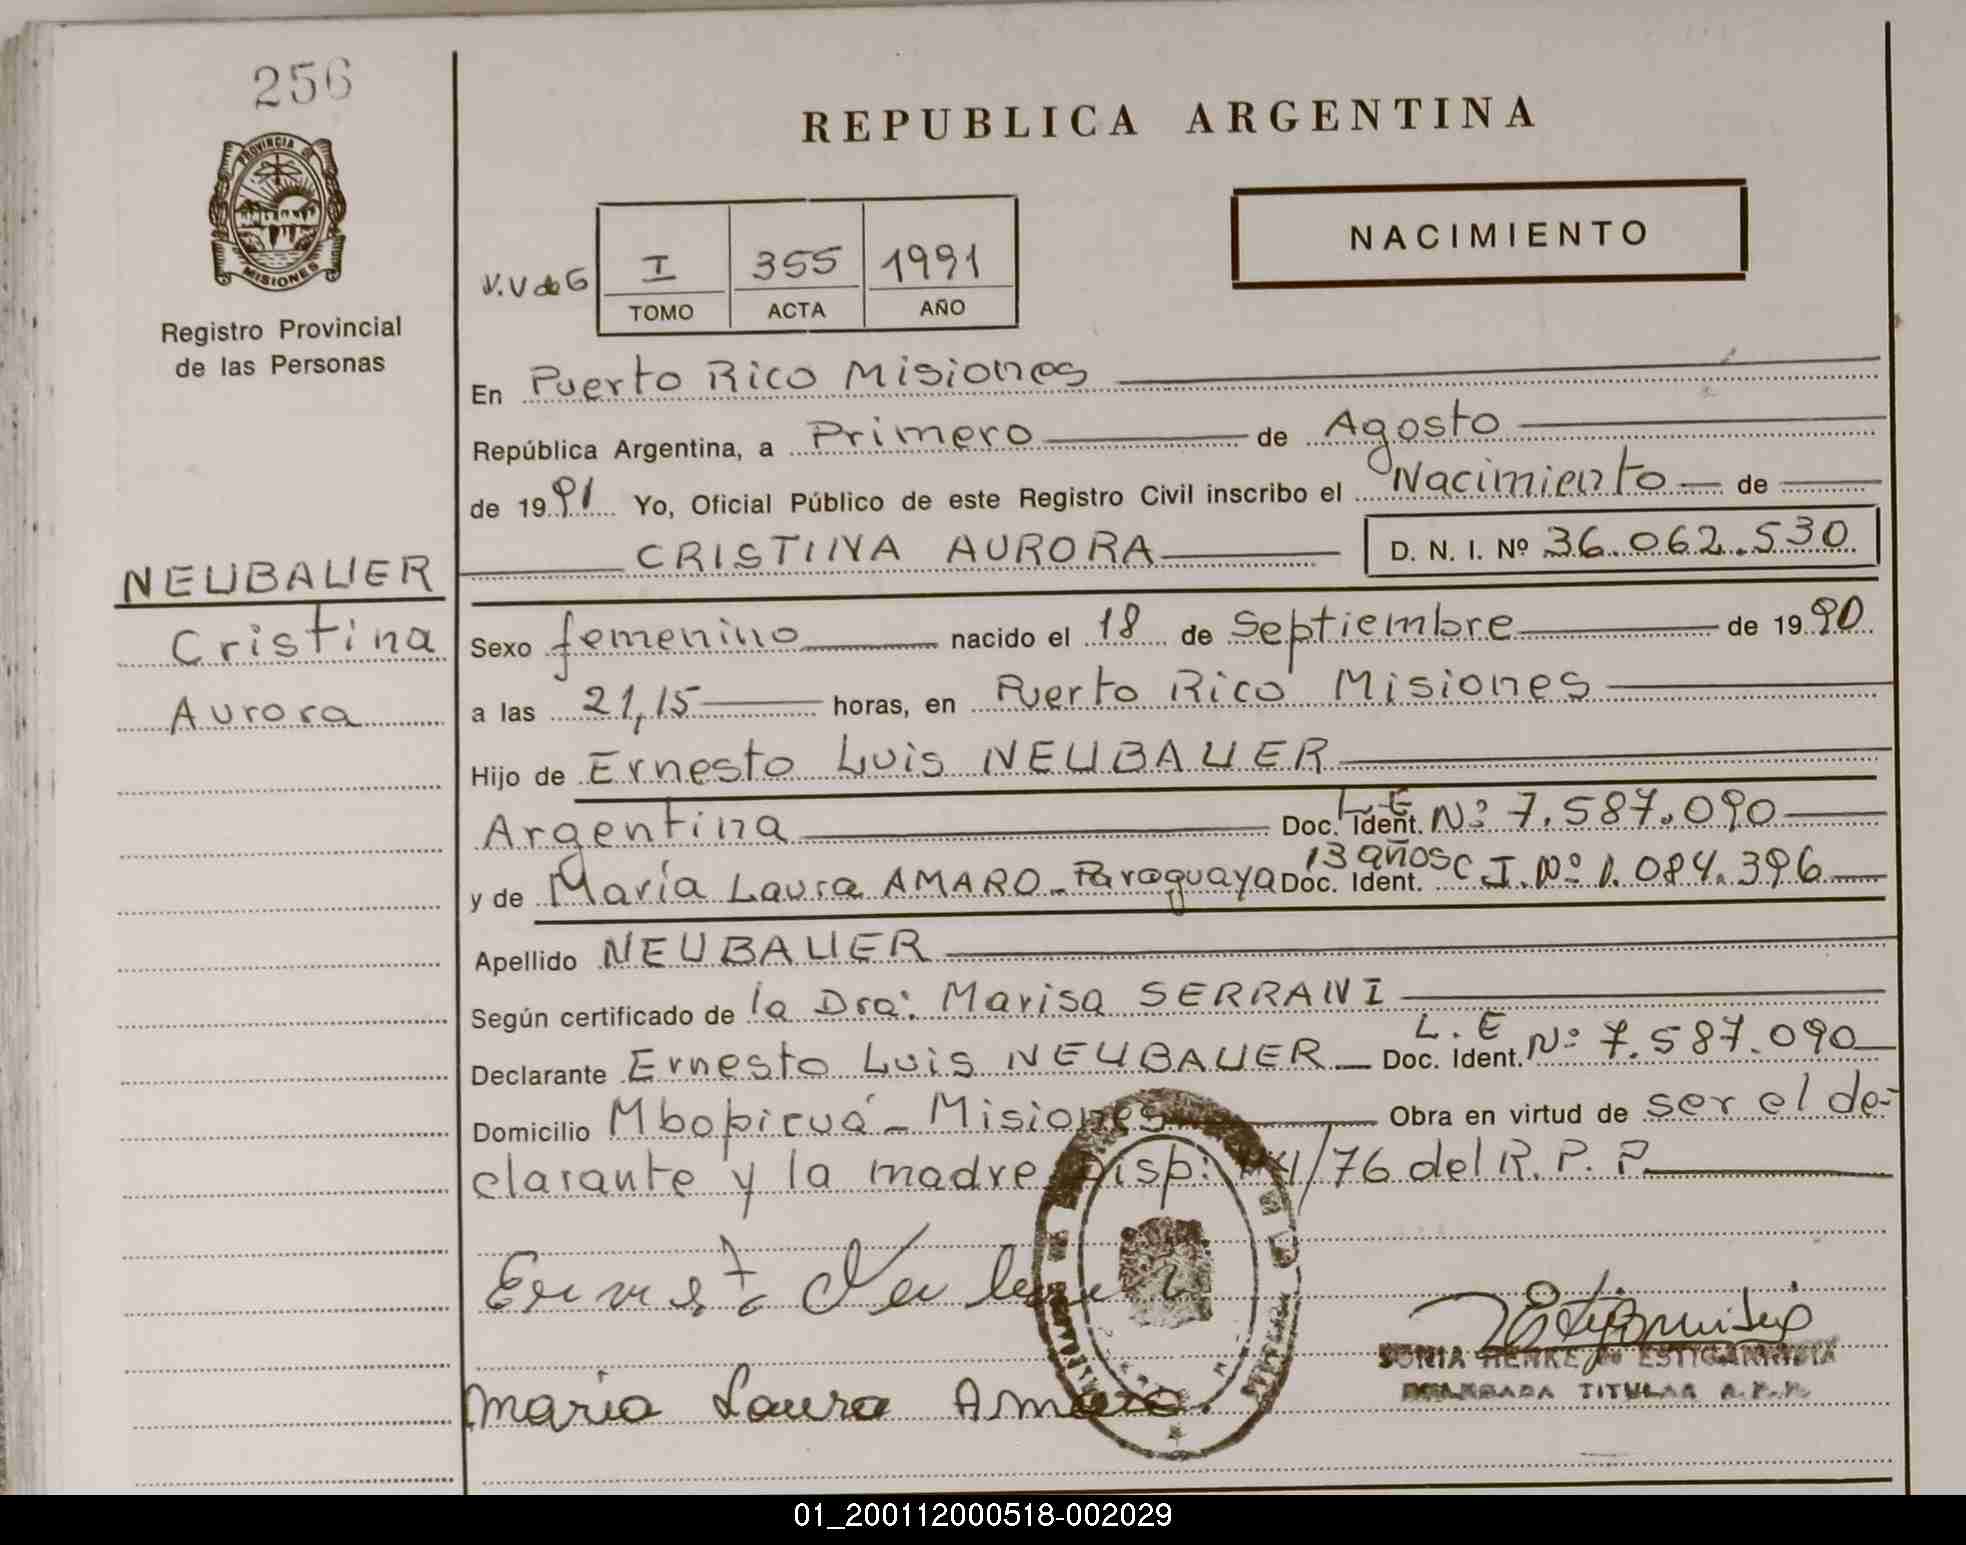 256
PROVINCIA DE
MISIONES
Registro Provincial
de las Personas
REPUBLICA ARGENTINA
NACIMIENTO
V.V de G I 355 1991
TOMO ACTA AÑO
En Puerto Rico Misiones
República Argentina, a Primero de Agosto
de 1991 Yo, Oficial Público de este Registro Civil inscribo el Nacimiento de
CRISTINA AURORA D. N. I. Nº 36.062.530
NEUBAUER
Cristina
Aurora
Sexo femenino nacido el 18 de Septiembre de 1990
a las 21,15 horas, en Puerto Rico Misiones
Hijo de Ernesto Luis NEUBAUER
Argentina Doc. Ident. L.E Nº 7.587.090
y de María Laura AMARO - Paraguaya 13 años Doc. Ident. C.I. Nº 1.084.396
Apellido NEUBAUER
Según certificado de la Dra: Marisa SERRANI
Declarante Ernesto Luis NEUBAUER Doc. Ident. L.E Nº 7.587.090
Domicilio Mbopicuá - Misiones Obra en virtud de ser el de-
clarante y la madre Disp: /76 del R.P.P.
Ernesto
Maria Laura Amaro
SONIA HENKE de ESTIGARRIBIA
DELEGADA TITULAR R.P.P.
01_200112000518-002029